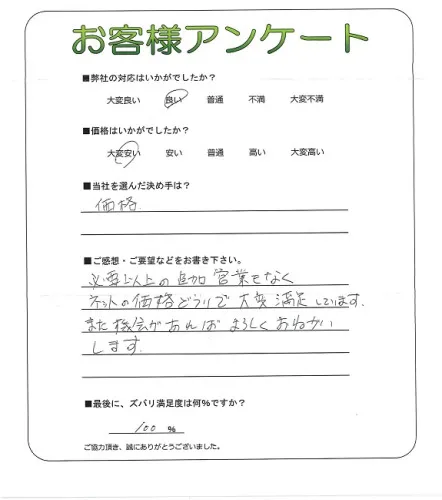 お客様アンケート
■弊社の対応はいかがでしたか？
大変良い 良い 普通 不満 大変不満
■価格はいかがでしたか？
大変安い 安い 普通 高い 大変高い
■当社を選んだ決め手は？
価格
■ご感想・ご要望などをお書き下さい。
必要以上の追加営業もなく
ネットの価格どうりで大変満足しています.
また機会があればよろしくおねがい
します.
■最後に、ズバリ満足度は何%ですか？
100 %
ご協力頂き、誠にありがとうございました。